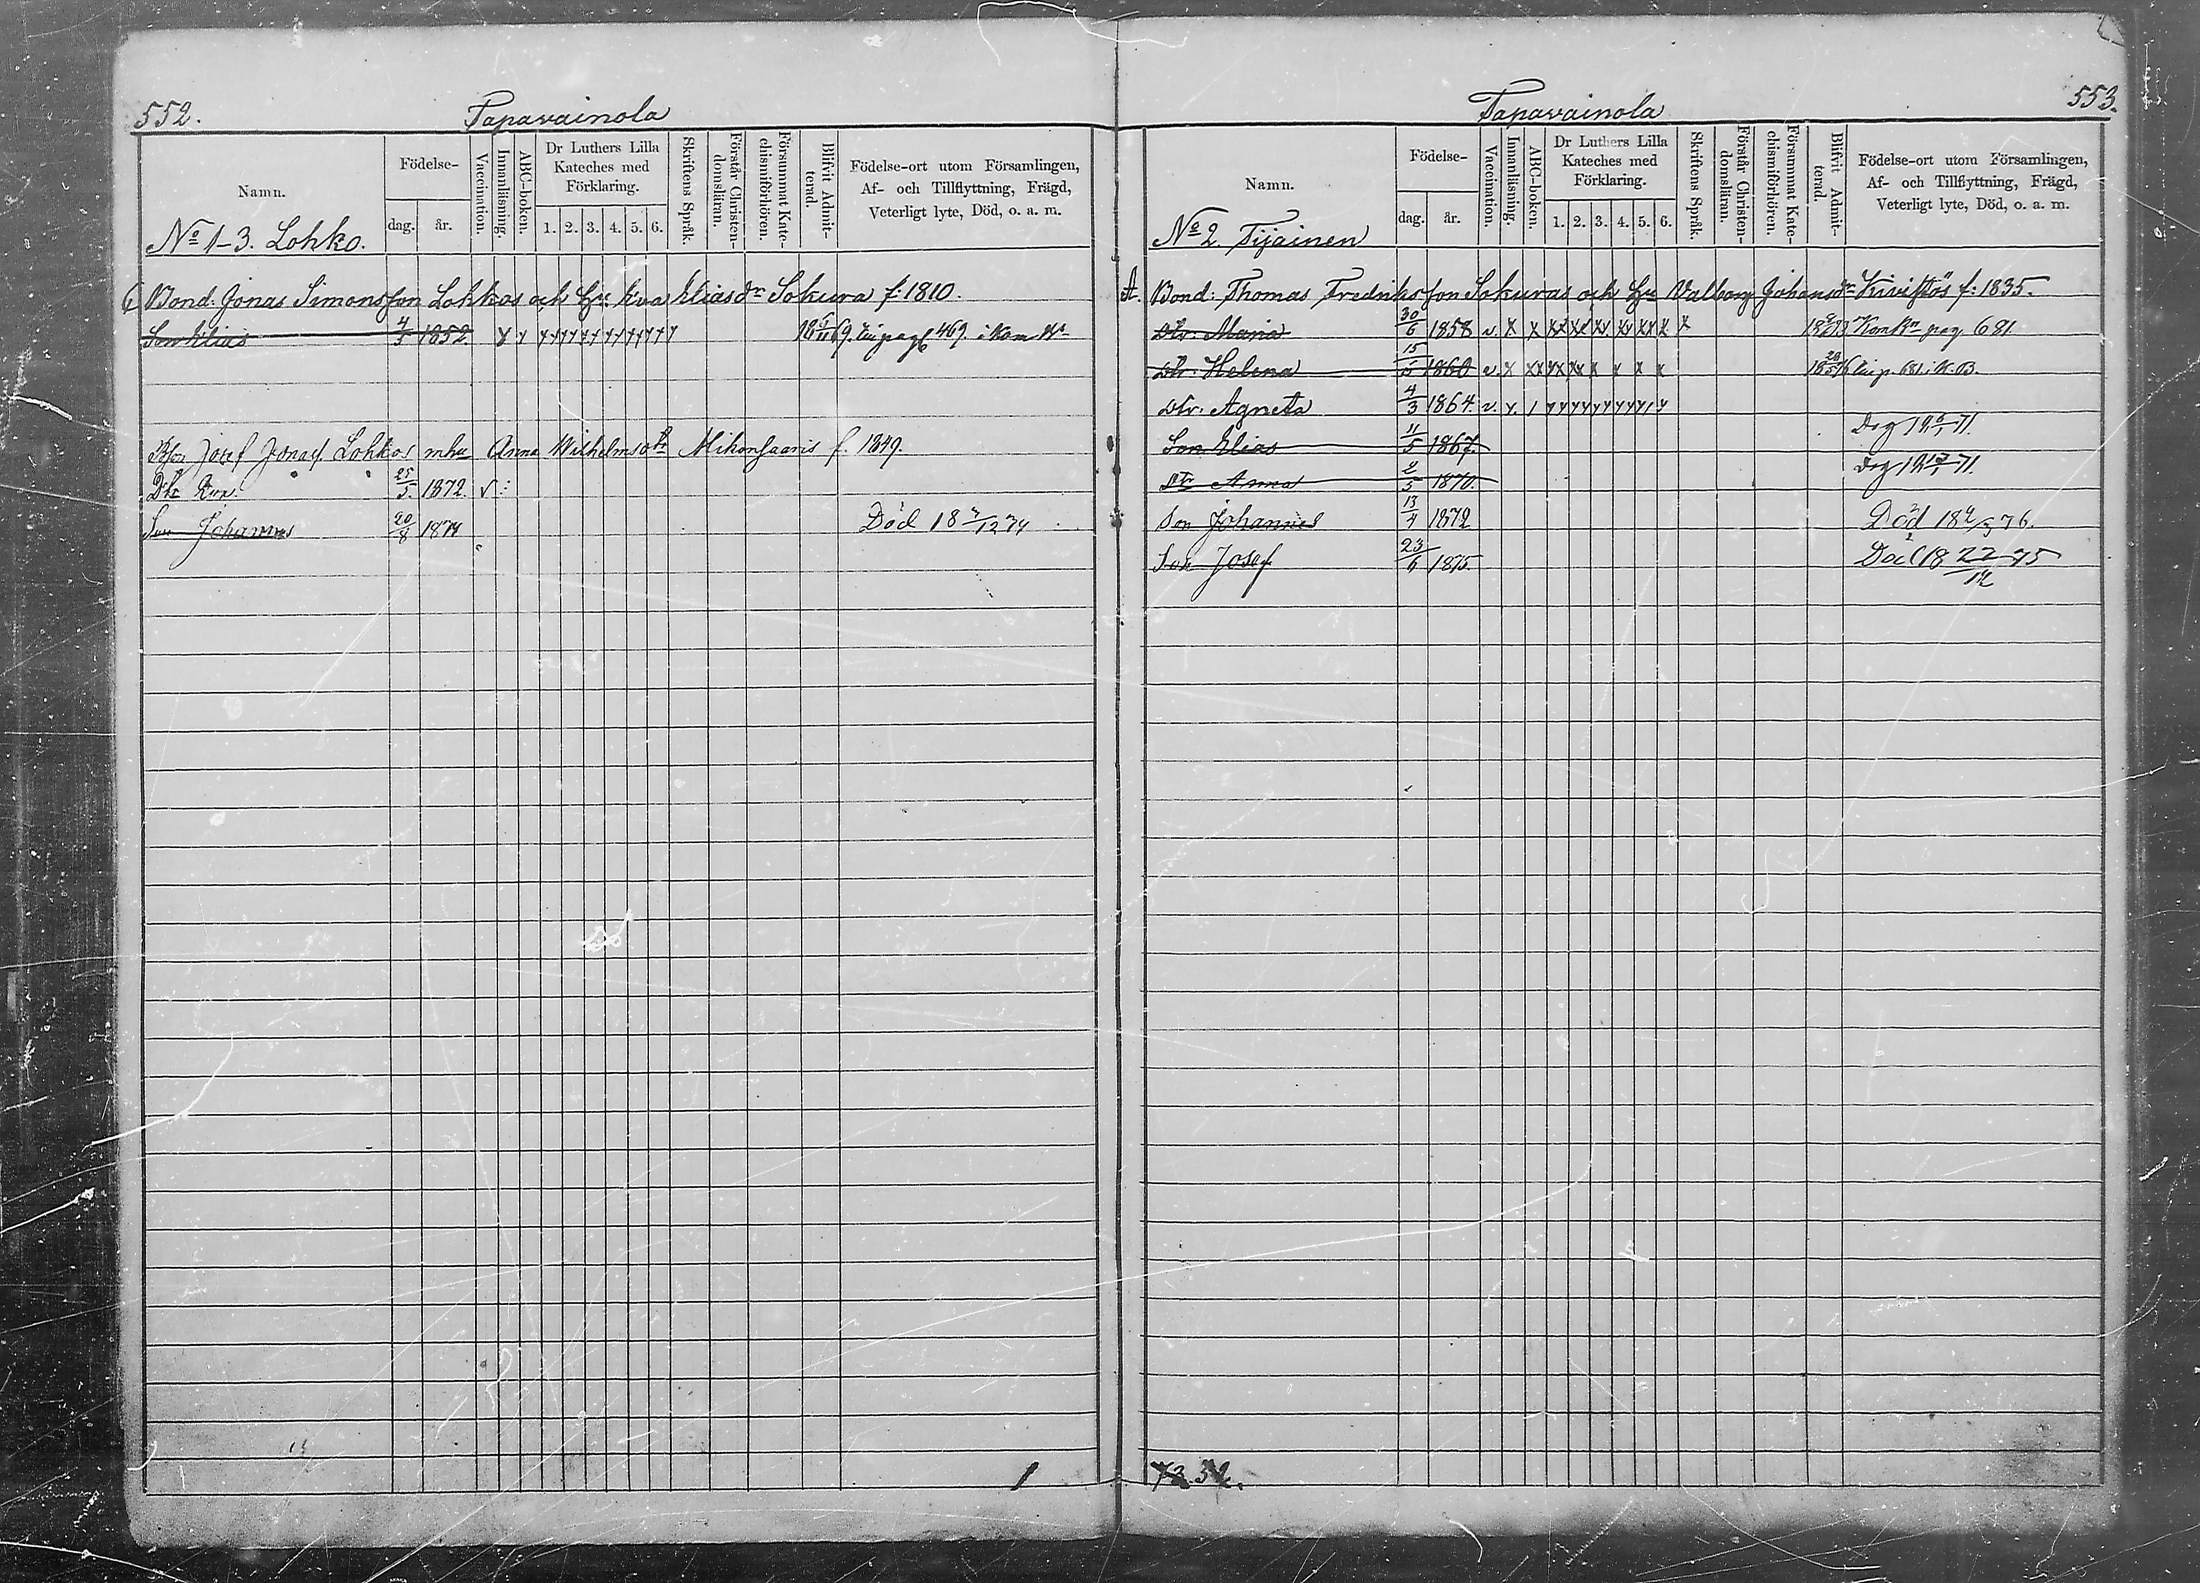 552.
Papavainola
Namn.
Födelse-
dag.
år.
Vaccination.
Innanläsning.
ABC-boken.
Dr Luthers Lilla
Kateches med
Förklaring.
1. 2. 3. 4. 5. 6.
Skriftens Språk.
Förstår Christen-
domsläran.
Försummat Kate-
chismiförhören.
Blifvit Admit-
terad.
Födelse-ort utom Församlingen,
Af- och Tillflyttning, Frägd,
Veterligt lyte, Död, o. a. m.
No 1-3. Lohko.
Bond: Jonas Simonsson Lohkos och Hu Eva Eliasdr Sokura f. 1810.
Son Elias 4/5 1852 pag 469. i Kom
Josef Jonass. Lohkos mhu Anna Wilhelmsdtr Mikonsaaris f. 1849.
Dtr 25/5 1872. v.
Son Johannes 20/8 1874 Död 18 /12 74
1
Papavainola
553.
Namn.
Födelse-
dag.
år.
Vaccination.
Innanläsning.
ABC-boken.
Dr Luthers Lilla
Kateches med
Förklaring.
1. 2. 3. 4. 5. 6.
Skriftens Språk.
Förstår Christen-
domsläran.
Försummat Kate-
chismiförhören.
Blifvit Admit-
terad.
Födelse-ort utom Församlingen,
Af- och Tillflyttning, Frägd,
Veterligt lyte, Död, o. a. m.
No 2. Tijainen
A. Bond: Thomas Fredriksson Sokuras och Hu Valborg Johansdr Kiviftös f. 1835.
Dtr. Maria 30/6 1858 v. x x xx xx xx xx xx x x pag 681
Dtr. Helena 15/5 1860 v. x xx xx xx x x x x p. 681 i K.B.
Dtr. Agneta 4/3 1864 v.
Son Elias 11/5 1867. Dog 71.
Dtr Anna 2/5 1870. Dog 71.
Son Johannes 13/4 1872 Död 18 /3 76.
Son Josef 23/6 1875. Död 18 22/12 75